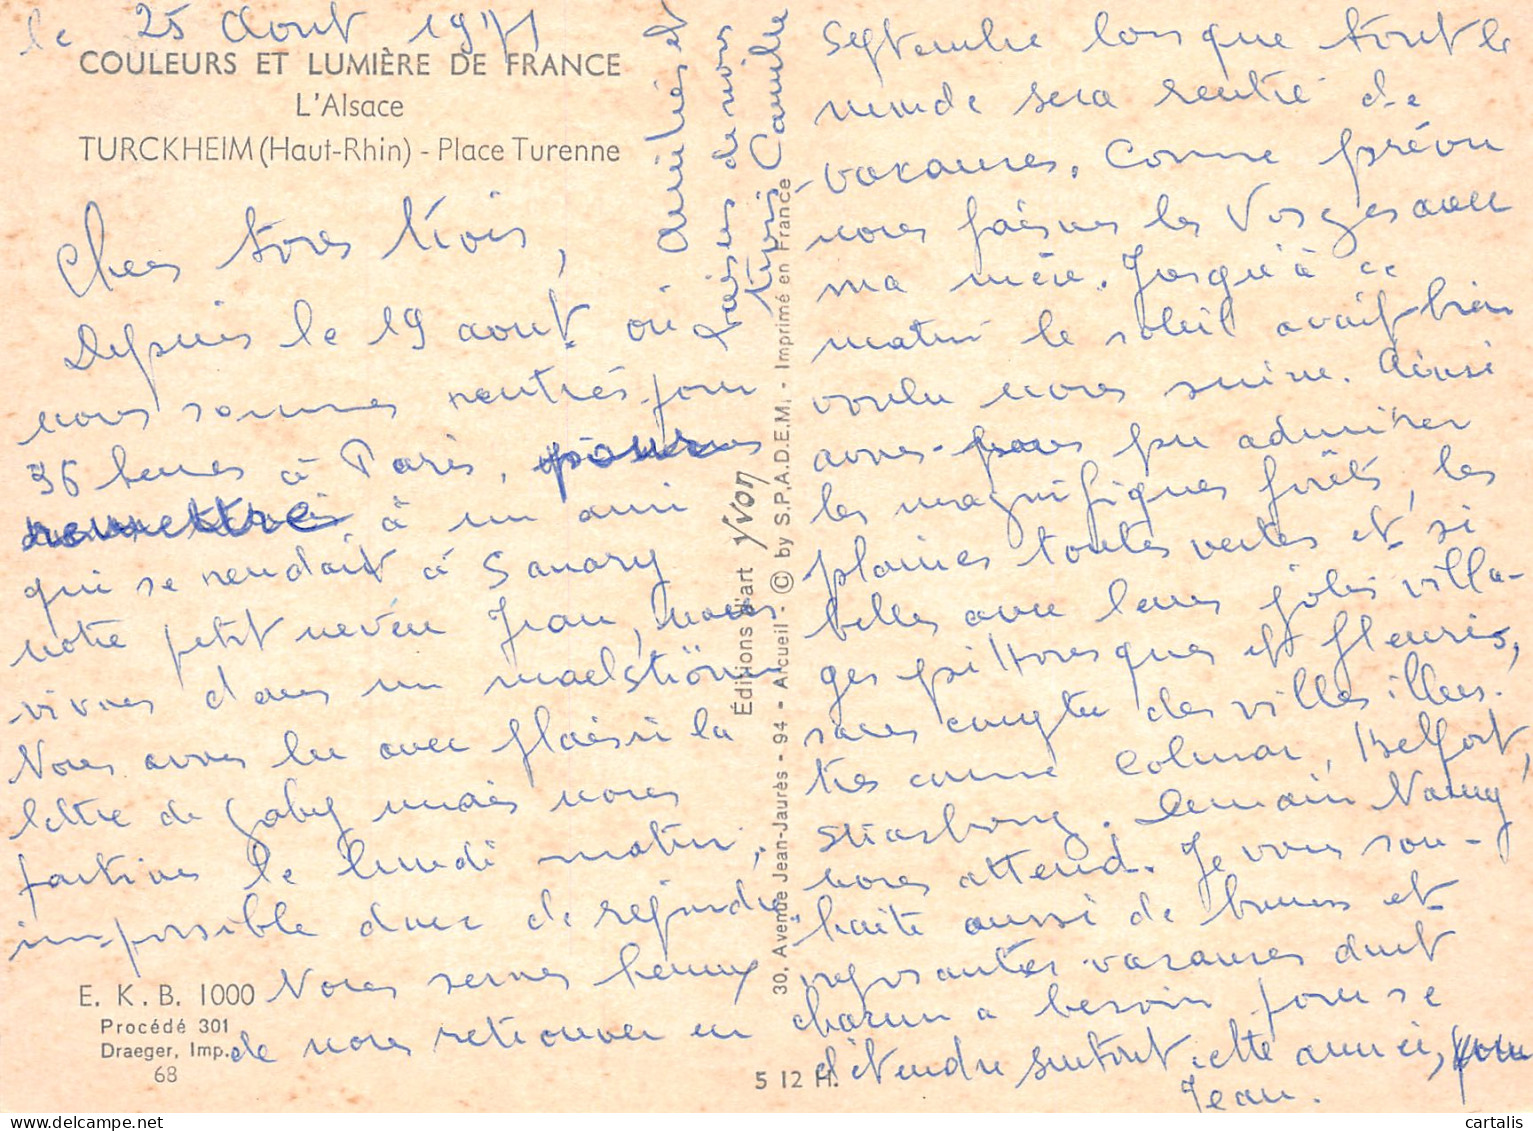 le 25 Aout 1971
COULEURS ET LUMIÈRE DE FRANCE
L'Alsace
TURCKHEIM (Haut-Rhin) - Place Turenne
Chers tous trois,
Depuis le 19 aout où
nous sommes rentrés pour
36 heures à Paris, pour
remettre à un ami
qui se rendait à Sanary
notre petit neveu Jean, nous
vivons dans un maelström
Nous avons lu avec plaisir la
lettre de Gaby mais nous
partions le lundi matin,
impossible donc de rejoindre
Nous serons heureux
de nous retrouver en
E. K. B. 1000
Procédé 301
Draeger, Imp.
68
Amitiés et
baisers de nous
trois Camille
Éditions d'art Yvon
30, Avenue Jean-Jaurès - 94 - Arcueil - © by S.P.A.D.E.M. - Imprimé en France
5 12 H.
Septembre lorsque tout le
monde sera rentré de
vacances. Comme prévu
nous faisons les Vosges avec
ma mère. Jusqu'à ce
matin le soleil avait bien
voulu nous suivre. Ainsi
avons-nous pu admirer
les magnifiques forêts, les
plaines toutes vertes et si
belles avec leurs jolis villa-
ges pittoresques et fleuris,
sans compter des villes illus-
tres comme Colmar, Belfort,
Strasbourg. Demain Nancy
nous attend. Je vous sou-
haite aussi de bonnes et
reposantes vacances dont
chacun a besoin pour se
détendre surtout cette année, pour
Jean.